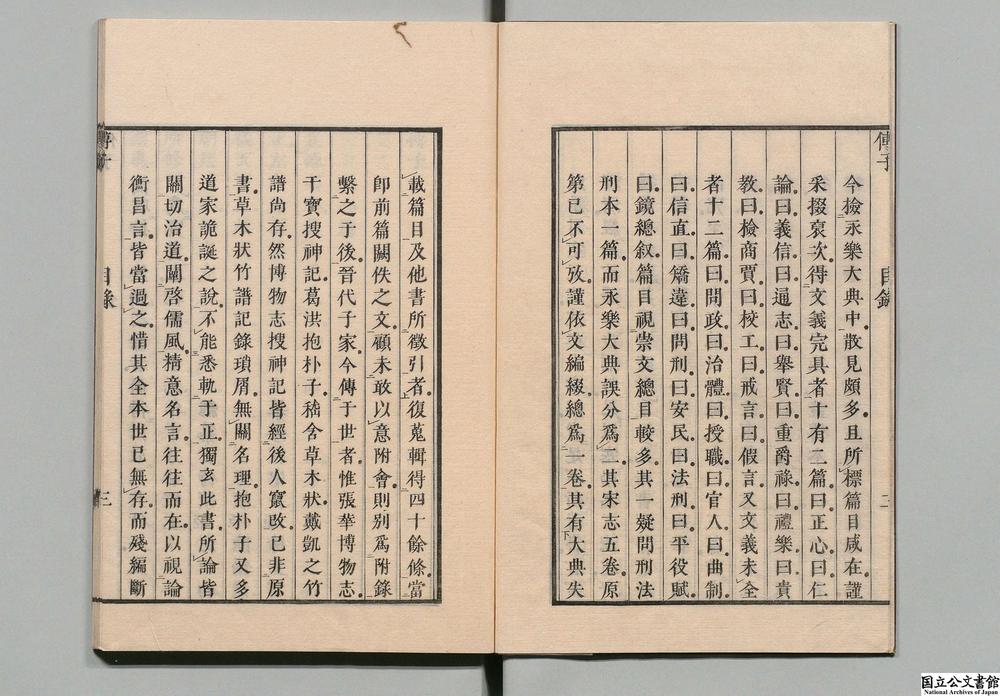 傅子
目錄
二
今檢永樂大典中散見頗多且所標篇目咸在謹
采掇裒次得文義完具者十有二篇曰正心曰仁
論曰義信曰通志曰舉賢曰重爵祿曰禮樂曰貴
教曰檢商賈曰校工曰戒言曰假言又文義未全
者十二篇曰問政曰治體曰授職曰官人曰曲制
曰信直曰矯違曰問刑曰安民曰法刑曰平役賦
曰鏡總叙篇目視崇文總目較多其一疑問刑法
刑本一篇而永樂大典誤分為二其宋志五卷原
第已不可攷謹依文編綴總為一卷其有大典失
載篇目及他書所徵引者復蒐輯得四十餘條當
卽前篇闕佚之文顧未敢以意附會則别為附錄
繫之于後晉代子家今傳于世者惟張華博物志
干寶搜神記葛洪抱朴子嵇含草木狀戴凱之竹
譜尚存然博物志搜神記皆經後人竄改已非原
書草木狀竹譜記錄瑣屑無關名理抱朴子又多
道家詭誕之說不能悉軌于正獨玄此書所論皆
關切治道闡啓儒風精意名言往往而在以視論
衡昌言皆當過之惜其全本世已無存而殘編斷
傅子
目錄
三
国立公文書館
National Archives of Japan